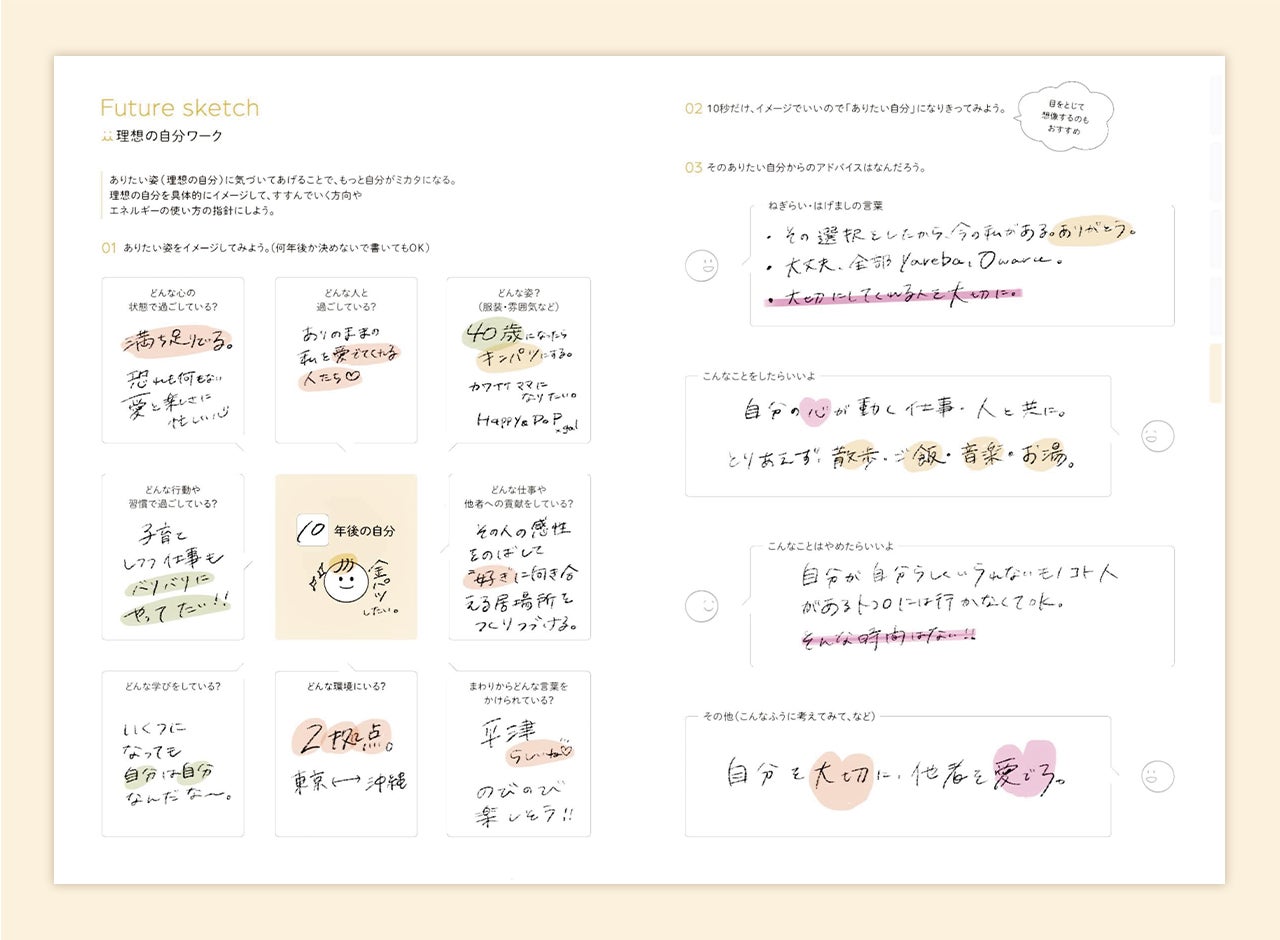 Future sketch
理想の自分ワーク
ありたい姿(理想の自分)に気づいてあげることで、もっと自分がミカタになる。
理想の自分を具体的にイメージして、すすんでいく方向や
エネルギーの使い方の指針にしよう。
01 ありたい姿をイメージしてみよう。(何年後か決めないで書いてもOK)
どんな心の
状態で過ごしている?
満ち足りてる。
恐れも何もない
愛と楽しさに
忙しい
どんな人と
過ごしている?
ありのままの
私を愛でてくれる
人たち♡
どんな姿?
(服装・雰囲気など)
40歳になったら
キンパツにする。
カワイイママに
なりたい。
Happy & PoP
×gal
どんな行動や
習慣で過ごしている?
子育て
しつつ仕事も
バリバリに
やってたい!!
10年後の自分
金パツ
したい。
どんな仕事や
他者への貢献をしている?
その人の感性
をのばして
"好き"に向き合
える居場所を
つくりつづける。
どんな学びをしている?
いくつに
なっても
自分は自分
なんだな〜。
どんな環境にいる?
2拠点。
東京⟷沖縄
まわりからどんな言葉を
かけられている?
平津
らしいね♡
のびのび
楽しそう!!
02 10秒だけ、イメージでいいので「ありたい自分」になりきってみよう。
目をとじて
想像するのも
おすすめ
03 そのありたい自分からのアドバイスはなんだろう。
ねぎらい・はげましの言葉
・その選択をしたから、今の私がある。ありがとう。
・大丈夫、全部 Yareba, Owaru.
・大切にしてくれる人を大切に。
こんなことをしたらいいよ
自分の心が動く仕事・人と共に。
とりあえず、散歩・ご飯・音楽・お湯。
こんなことはやめたらいいよ
自分が自分らしくいられないモノコト人
があるトコロには行かなくてOK。
そんな時間はない!!
その他(こんなふうに考えてみて、など)
自分を大切に、他者を愛でろ。